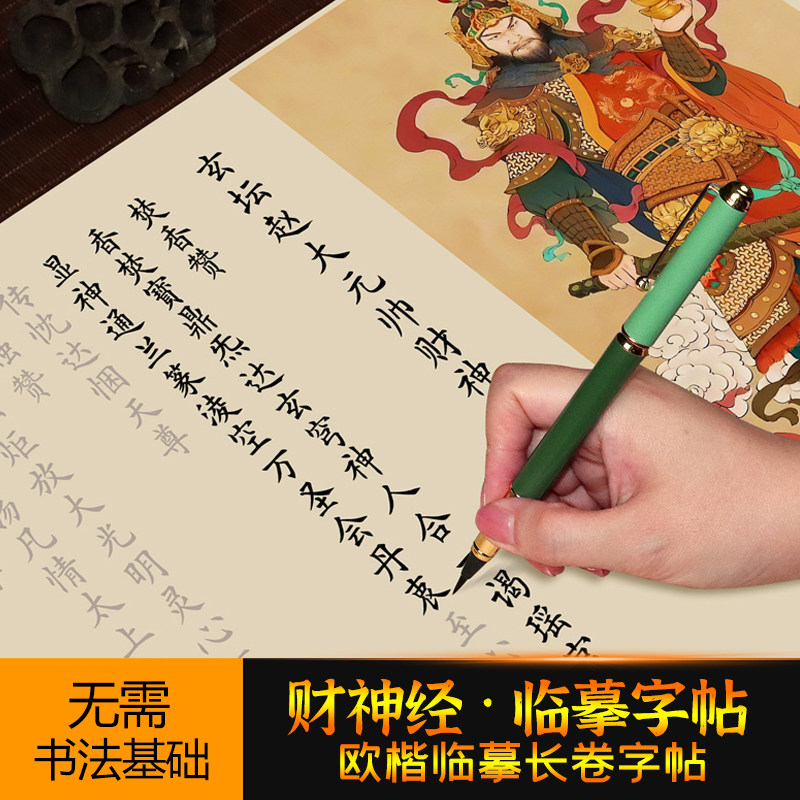 玄坛赵大元帅财神
焚香赞
香焚寶鼎炁达玄穹神人合谒瑶
显神通兰篆淩空万圣会丹衷至
传忱达悃天尊
赞
炬放大光明灵心
凡情太上
无需
书法基础
财神经·临摹字帖
欧楷临摹长卷字帖